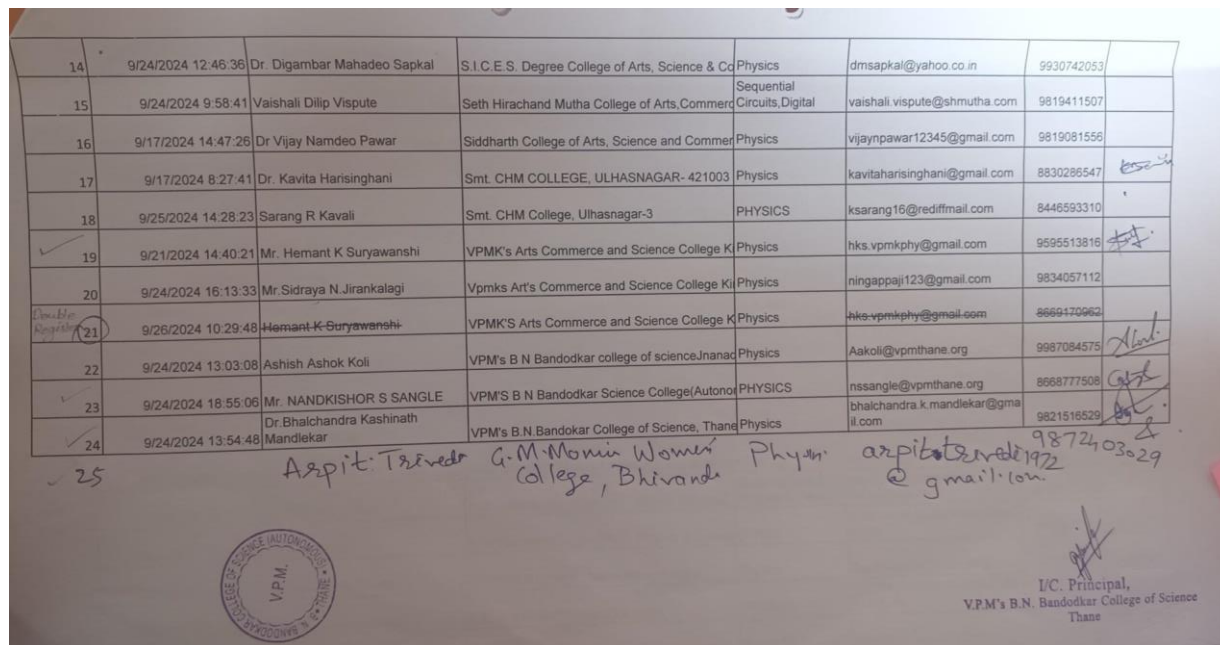 14 9/24/2024 12:46:36 Dr. Digambar Mahadeo Sapkal S.I.C.E.S. Degree College of Arts, Science & Co Physics dmsapkal@yahoo.co.in 9930742053
15 9/24/2024 9:58:41 Vaishali Dilip Vispute Seth Hirachand Mutha College of Arts,Commerc Sequential Circuits,Digital vaishali.vispute@shmutha.com 9819411507
16 9/17/2024 14:47:26 Dr Vijay Namdeo Pawar Siddharth College of Arts, Science and Commer Physics vijaynpawar12345@gmail.com 9819081556
17 9/17/2024 8:27:41 Dr. Kavita Harisinghani Smt. CHM COLLEGE, ULHASNAGAR- 421003 Physics kavitaharisinghani@gmail.com 8830286547
18 9/25/2024 14:28:23 Sarang R Kavali Smt. CHM College, Ulhasnagar-3 PHYSICS ksarang16@rediffmail.com 8446593310
19 9/21/2024 14:40:21 Mr. Hemant K Suryawanshi VPMK's Arts Commerce and Science College K Physics hks.vpmkphy@gmail.com 9595513816
20 9/24/2024 16:13:33 Mr.Sidraya N.Jirankalagi Vpmks Art's Commerce and Science College Ki Physics ningappaji123@gmail.com 9834057112
Double
21 9/26/2024 10:29:48 Hemant K Suryawanshi VPMK'S Arts Commerce and Science College K Physics hks.vpmkphy@gmail.com 8669170962
22 9/24/2024 13:03:08 Ashish Ashok Koli VPM's B N Bandodkar college of scienceJnanad Physics Aakoli@vpmthane.org 9987084575
23 9/24/2024 18:55:06 Mr. NANDKISHOR S SANGLE VPM'S B N Bandodkar Science College(Autonor PHYSICS nssangle@vpmthane.org 8668777508
24 9/24/2024 13:54:48 Dr.Bhalchandra Kashinath Mandlekar VPM's B.N.Bandokar College of Science, Thane Physics bhalchandra.k.mandlekar@gmail.com 9821516529
25 Arpit Trivedi G.M.Momin Women College, Bhivandi arpittrivedi1972@gmail.com 9872403029
V.P.M.
B. N. BANDODKAR COLLEGE OF SCIENCE (AUTONOMOUS) THANE
I/C. Principal,
V.P.M's B.N. Bandodkar College of Science
Thane